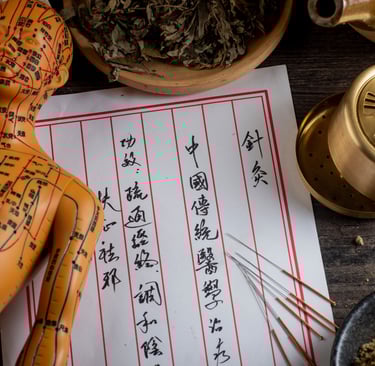 針灸
中國傳統醫學治疗
功效：疏通经络.調和陰
扶正祛邪